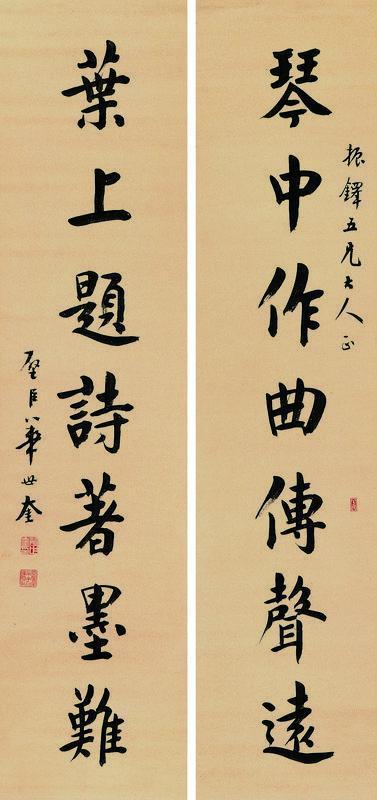 振鐸五兄大人正
琴中作曲傳聲遠
葉上題詩著墨難
璧臣華世奎